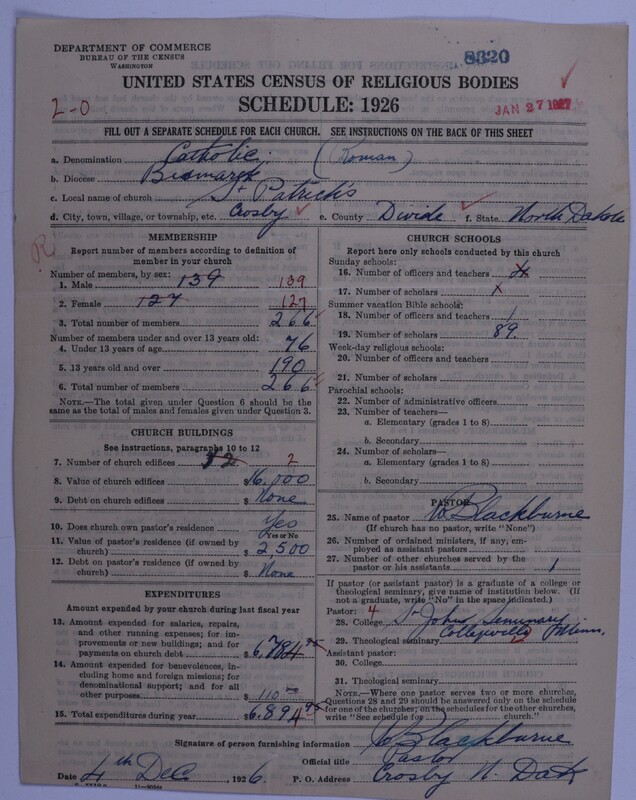 DEPARTMENT OF COMMERCE
BUREAU OF THE CENSUS
WASHINGTON
8320
UNITED STATES CENSUS OF RELIGIOUS BODIES
SCHEDULE: 1926
2-0
JAN 27 1927
FILL OUT A SEPARATE SCHEDULE FOR EACH CHURCH. SEE INSTRUCTIONS ON THE BACK OF THIS SHEET
a. Denomination Catholic. (Roman)
b. Diocese Bismarck
c. Local name of church St Patrick's
d. City, town, village, or township, etc. Crosby e. County Divide f. State North Dakota
R
MEMBERSHIP
Report number of members according to definition of member in your church
Number of members, by sex:
1. Male 139 139
2. Female 127 127
3. Total number of members 266
Number of members under and over 13 years old:
4. Under 13 years of age 76
5. 13 years old and over 190
6. Total number of members 266
NOTE.—The total given under Question 6 should be the same as the total of males and females given under Question 3.
CHURCH BUILDINGS
See instructions, paragraphs 10 to 12
7. Number of church edifices 2 2
8. Value of church edifices $16,000
9. Debt on church edifices $ None
10. Does church own pastor's residence Yes
Yes or No
11. Value of pastor's residence (if owned by church) $ 2500
12. Debt on pastor's residence (if owned by church) $ None
EXPENDITURES
Amount expended by your church during last fiscal year
13. Amount expended for salaries, repairs, and other running expenses; for improvements or new buildings; and for payments on church debt $6,784
14. Amount expended for benevolences, including home and foreign missions; for denominational support; and for all other purposes $ 110.00
15. Total expenditures during year $6,894
CHURCH SCHOOLS
Report here only schools conducted by this church
Sunday schools:
16. Number of officers and teachers
17. Number of scholars x
Summer vacation Bible schools:
18. Number of officers and teachers 1
19. Number of scholars 89.
Week-day religious schools:
20. Number of officers and teachers
21. Number of scholars
Parochial schools:
22. Number of administrative officers
23. Number of teachers—
a. Elementary (grades 1 to 8)
b. Secondary
24. Number of scholars—
a. Elementary (grades 1 to 8)
b. Secondary
PASTOR
25. Name of pastor Blackburne
(If church has no pastor, write "None")
26. Number of ordained ministers, if any, employed as assistant pastors
27. Number of other churches served by the pastor or his assistants 1
If pastor (or assistant pastor) is a graduate of a college or theological seminary, give name of institution below. (If not a graduate, write "No" in the space indicated.)
Pastor: 4
28. College St Johns Seminary
29. Theological seminary Collegeville Minn.
Assistant pastor:
30. College
31. Theological seminary
NOTE.—Where one pastor serves two or more churches, Questions 28 and 29 should be answered only on the schedule for one of the churches; on the schedules for the other churches, write "See schedule for church."
Signature of person furnishing information Blackburne
Official title Pastor
Date 4th Dec, 1926 P. O. Address Crosby N. Dak